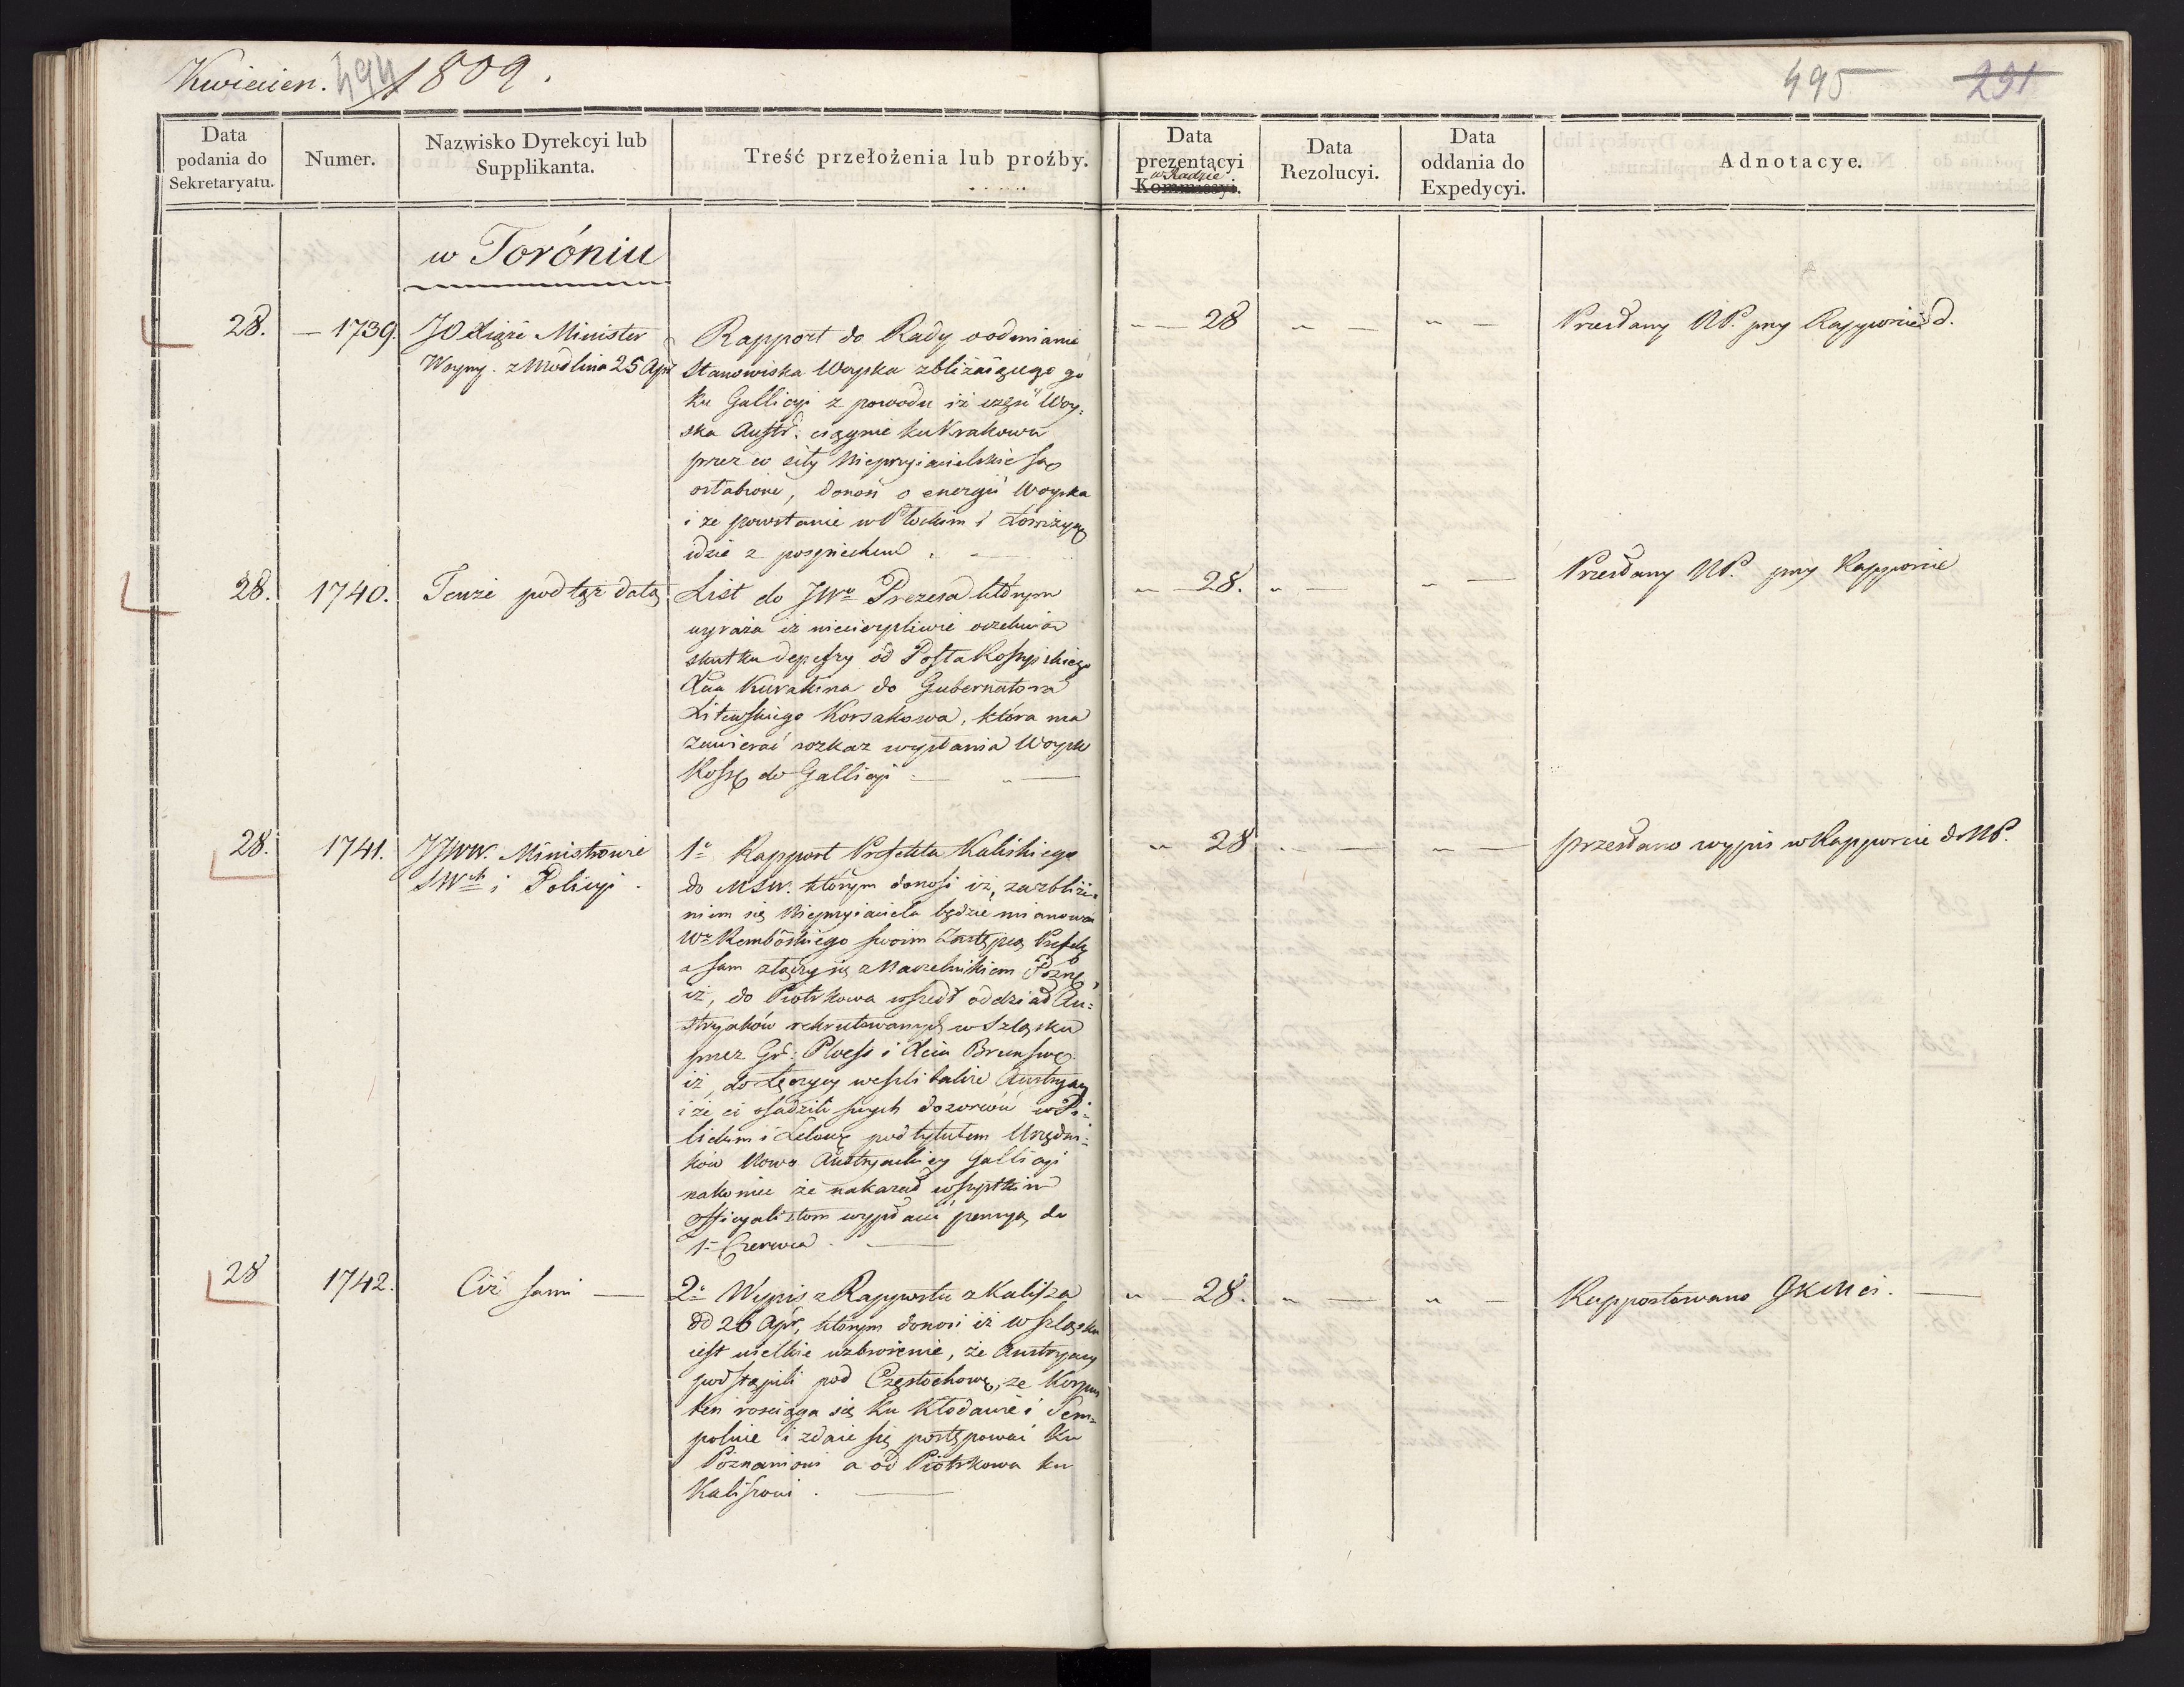 Kwiecien. 494 1809.
495 291
Data podania do Sekretaryatu.
Numer.
Nazwisko Dyrekcyi lub Supplikanta.
Treść przełożenia lub proźby.
Data prezentącyi w Radzie Kommissyi.
Data Rezolucyi.
Data oddania do Expedycyi.
Adnotacye.
w Toróniu
28. — 1739. JO Xiąże Minister
Woyny. z Modlina 25 Apr
Rapport do Rady o odmianie
Stanowiska Woyska zbliżaiącego go
ku Gallicyi z powodu iż część Woy=
ska Austr: ciągnie ku Krakowu
przez co siły Nieprzyiacielskie są
osłabione, donosi o energii Woyska
i że powstanie w Płockim i Łomżyń
idzie z pospiechem. —
„ — 28 „ — „ —
Przesłany NP. przy Rapporcie d.
28. 1740. Tenże pod tąż datą
List do JWo Prezesa którym
wyraża iż niecierpliwie oczekiwa
skutku depeszy od Posła Rossyiskiego
Xcia Kurakina do Gubernatora
Litewskiego Korsakowa, która ma
zawierać rozkaz wysłania Woysk
Ross do Gallicyi — „ —
„ — 28. „ — „ —
Przesłany NP. przy Rapporcie
28. 1741. JJWW. Ministrowie
SWch i Policyi.
1o Rapport Prefekta Kaliskiego
do MSW. którym donosi iż, za zbliże=
niem się Nieprzyiaciela będzie mianował
Wo Rembowskiego swoim Zastępcą Prefek
a sam złączy się z Naczelnikiem Pozn
iż, do Piotrkowa wszedł oddział Au=
stryaków rekrutowanych w Szląsku
przez Gr: Pless i Xcia Brunsw
iż, do Łęczycy weszli także Austryacy
i że ci osadzili swych dozorców w Pi=
lickim i Lelow pod tytułem Urzędni=
ków Nowo Austryackiey Gallicyi
nakoniec że nakazał wszystkim
officyalistom wypłacić pensyą do
1o Czerwca. —
„ 28 „ — „ —
przesłano wypis w Rapporcie do NP.
28 1742. Ciż sami —
2o Wypis z Rapportu z Kalisza
od 26 Apr, którym donosi iż w Szląsku
iest wielkie uzbroienie, że Austryacy
podstąpili pod Częstochowę, że Korpus
ten rosciąga się ku Kłodawie i Sem=
polnie i zdaie się postępować ku
Poznaniowi a od Piotrkowa ku
Kaliszowi. —
„ — 28. „ — „ —
Rapportowano JKMci. —